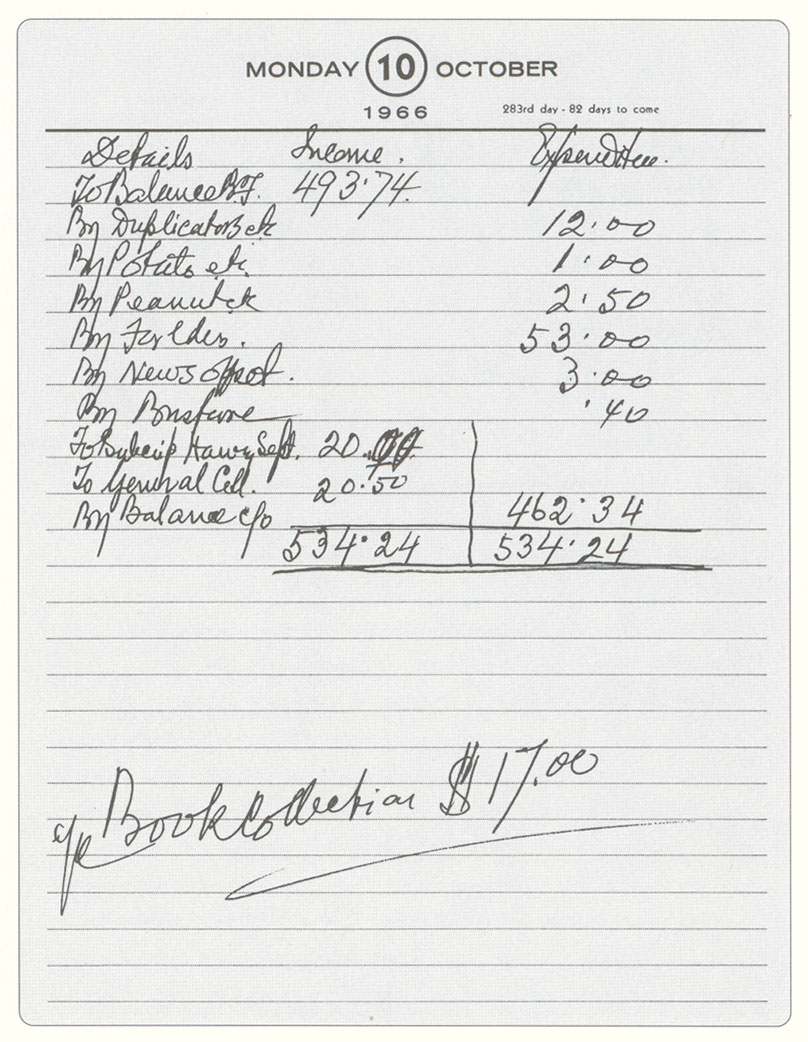 MONDAY 10 OCTOBER
1966 283rd day - 82 days to come
Details Income. Expenditure.
To Balance B.F. 493.74.
By Duplicator 12.00
By Potato etc. 1.00
By Peanut 2.50
By 53.00
By News 3.00
By Busfare .40
To Sept. 20.
To General Coll. 20.50
By Balance c/o 462.34
534.24 534.24
Book Collection $17.00